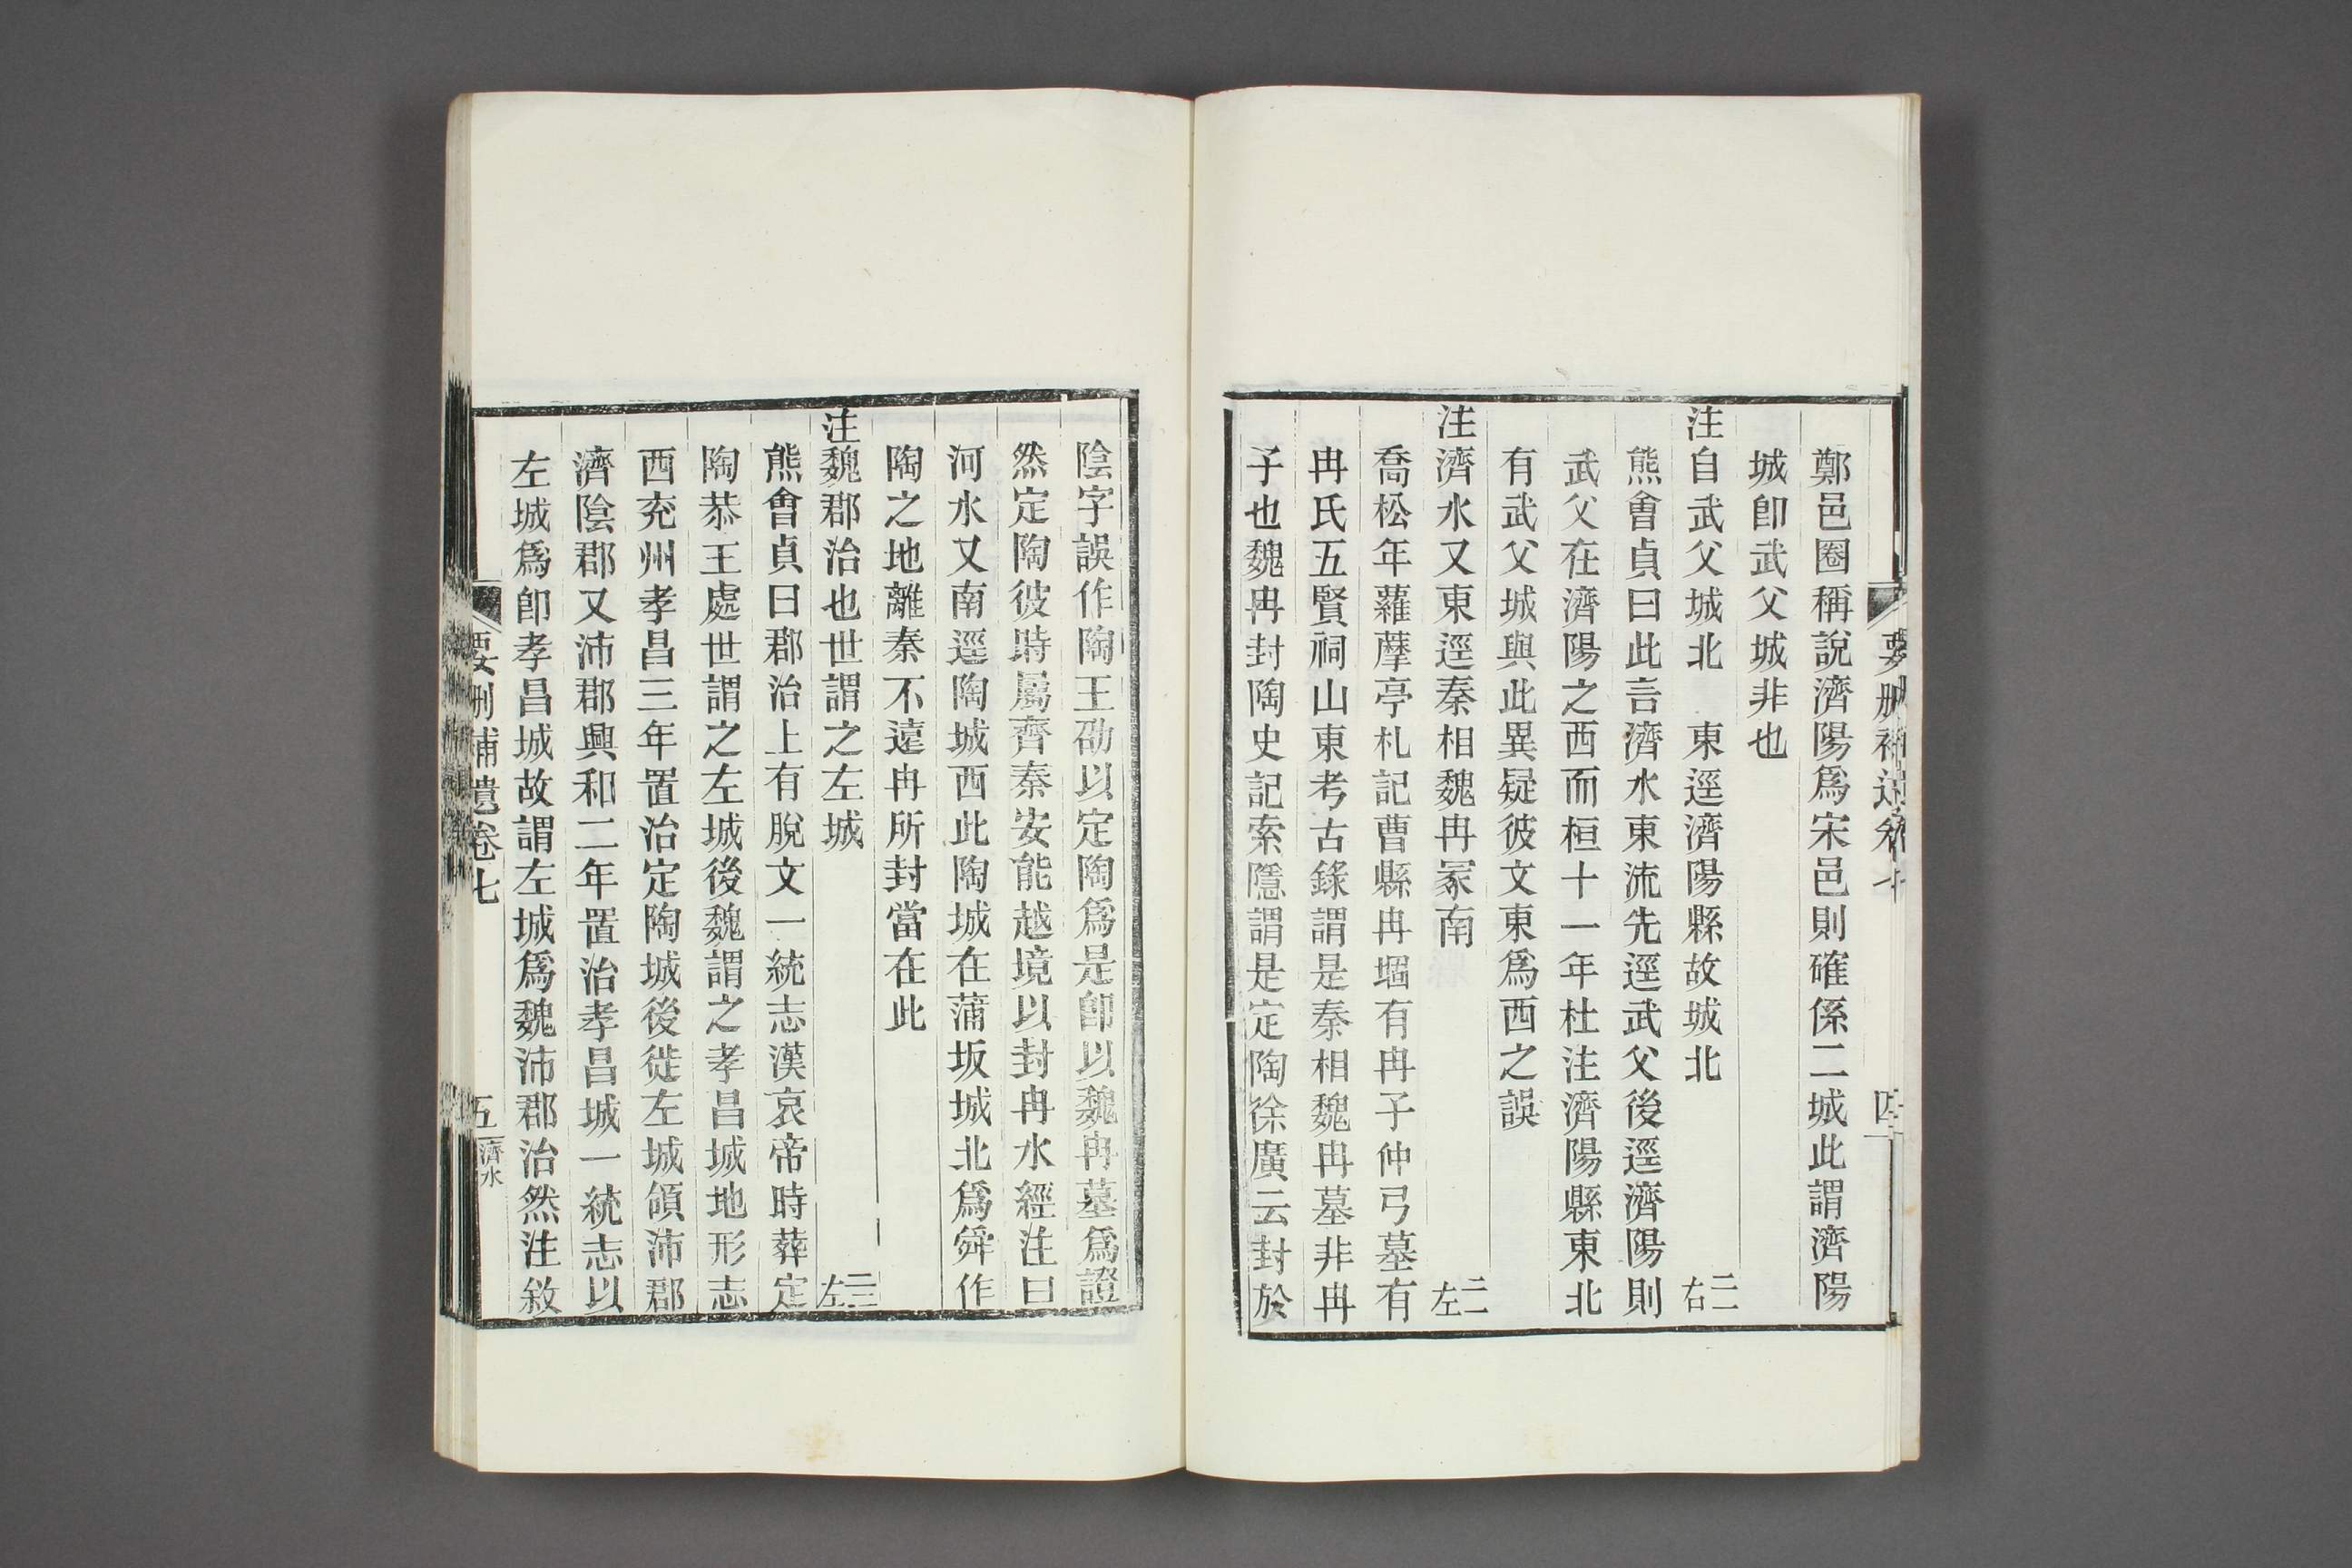 鄭邑圈稱說濟陽爲宋邑則確係二城此謂濟陽
城卽武父城非也
注自武父城北　東逕濟陽縣故城北 二一右
熊會貞曰此言濟水東流先逕武父後逕濟陽則
武父在濟陽之西而桓十一年杜注濟陽縣東北
有武父城與此異疑彼文東爲西之誤
注濟水又東逕秦相魏冉冢南 二一左
喬松年蘿藦亭札記曹縣冉堌有冉子仲弓墓有
冉氏五賢祠山東考古錄謂是秦相魏冉墓非冉
子也魏冉封陶史記索隱謂是定陶徐廣云封於
陰字誤作陶王劭以定陶爲是卽以魏冉墓爲證
然定陶彼時屬齊秦安能越境以封冉水經注曰
河水又南逕陶城西此陶城在蒲坂城北爲舜作
陶之地離秦不遠冉所封當在此
注魏郡治也世謂之左城 二三左
熊會貞曰郡治上有脫文一統志漢哀帝時葬定
陶恭王處世謂之左城後魏謂之孝昌城地形志
西兖州孝昌三年置治定陶城後徙左城領沛郡
濟陰郡又沛郡興和二年置治孝昌城一統志以
左城爲卽孝昌城故謂左城爲魏沛郡治然注敘
要刪補遺卷七
五
濟水